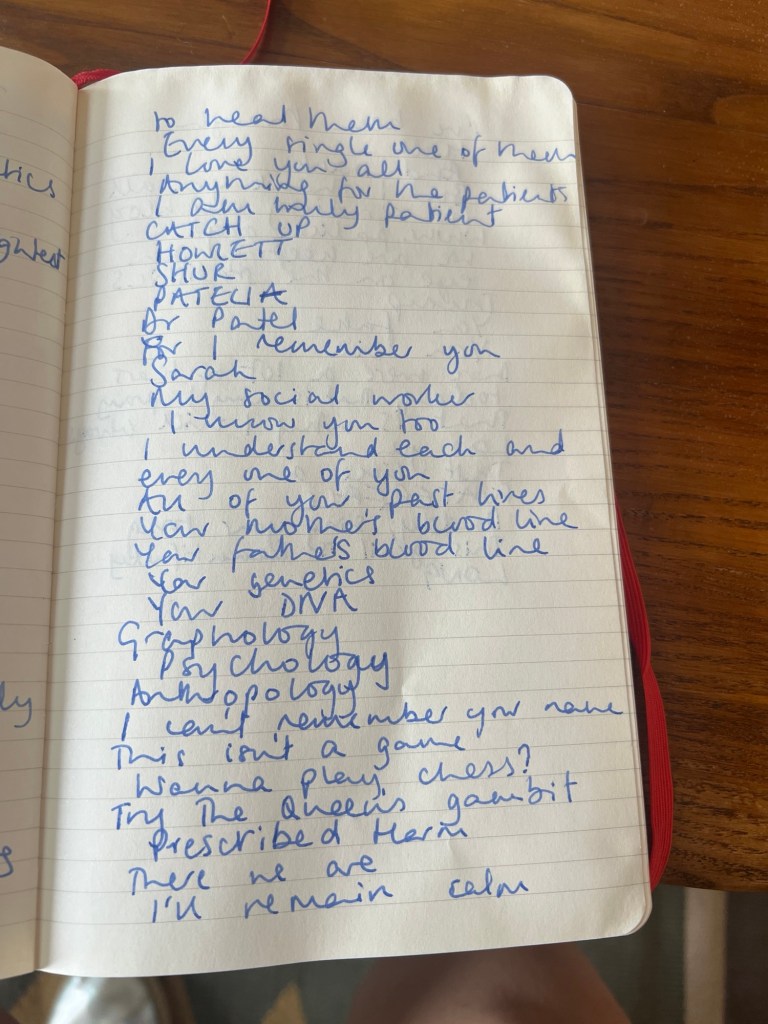 tics
ghtest
ly
s
to heal them
Every single one of them
I love you all
Anything for the patients
I am truly patient
CATCH UP
HOWLETT
SHUR
PATELIA
Dr Patel
For I remember you
Sarah
My social worker
I know you too
I understand each and
every one of you
All of your past lives
Your mother's blood line
Your father's blood line
Your genetics
Your DNA
Graphology
Psychology
Anthropology
I can't remember your name
This isn't a game
Wanna play chess?
Try The Queens gambit
Prescribed Harm
There we are
I'll remain calm